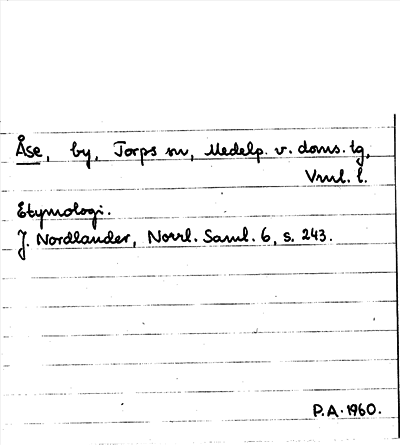 Åse, by, Torps sn, Medelp. v. doms. tg,
Vnl. l.
Etymologi.
J. Nordlander, Norrl. Saml. 6, s. 243.
P.A. 1960.